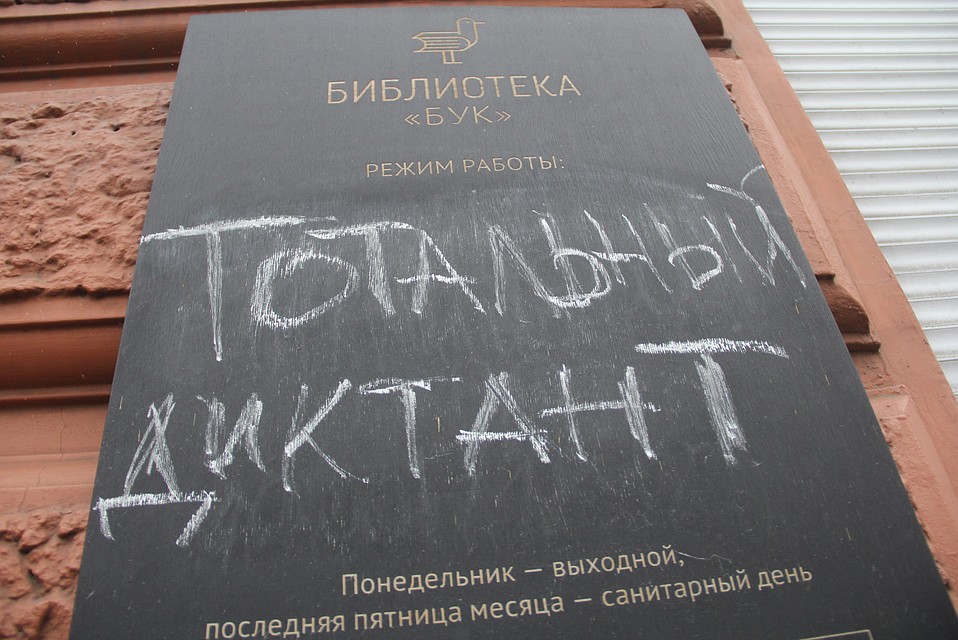 БИБЛИОТЕКА
«БУК»
РЕЖИМ РАБОТЫ:
ТОТАЛЬНЫЙ
ДИКТАНТ
Понедельник – выходной,
последняя пятница месяца – санитарный день